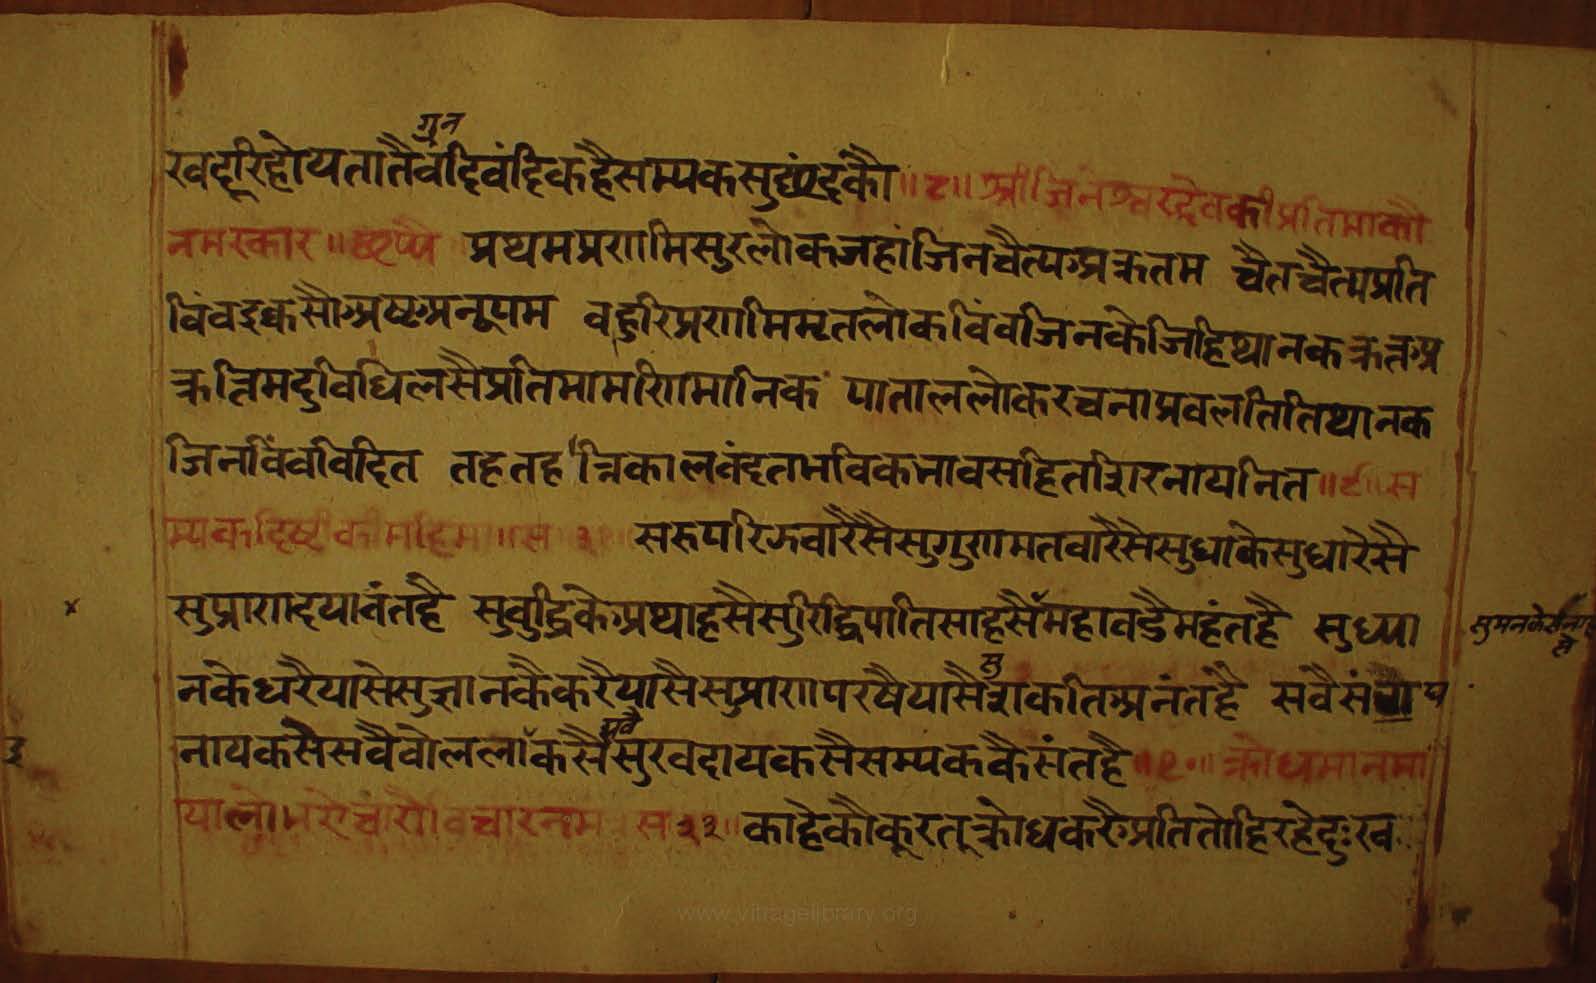 गुन
रवदूरिहोयतातैवंदिवंदिकहैसम्यकसुछंदकौं ॥८॥ श्रीजिनेश्वरदेवकीप्रतिमाकौ
नमस्कार ॥छप्पै प्रथमप्रणमिसुरलोकजहांजिनचैत्यअक्रतम चैतचैत्यप्रति
विंवइकसौअष्टअनूपम वहुरिप्रणमिमृतलोकविंवजिनकेजिहिथानकक्रतअ
क्रत्रिमदुविधिलसैप्रतिमामणिमानिक पाताललोकरचनाप्रवलतितिथानक
जिनविंवविदित तहतहत्रिकालवंदतभविकभावसहितशिरनायनित ॥९॥ स
म्यकदिष्टीकीमहिमा ॥ स ३१ सरुपरिझवारेसैसुगुणमतवारेसेसुधाकेसुधारेसै
सुप्राणदयावंतहै सुवुद्धिकेअथाहसैसुरिद्धिपातिसाहसैमहावडेमहंतहै सुध्या
सुमनकेसना है
नकेधरैयासेसुज्ञानकैकरैयासैसुप्राणपरषैयासैशकतिअनंतहै सवैसंघ
सु
नायकसैसवैवोललाकसैसुरवदायकसैसम्यककैसंतहै ॥१०॥ क्रोधमानमा
सवै
यालोभ स २३ ॥ काहेकौकूरतूक्रोधकरैअतितोहिरहेदुःख
www.vitragelibrary.org